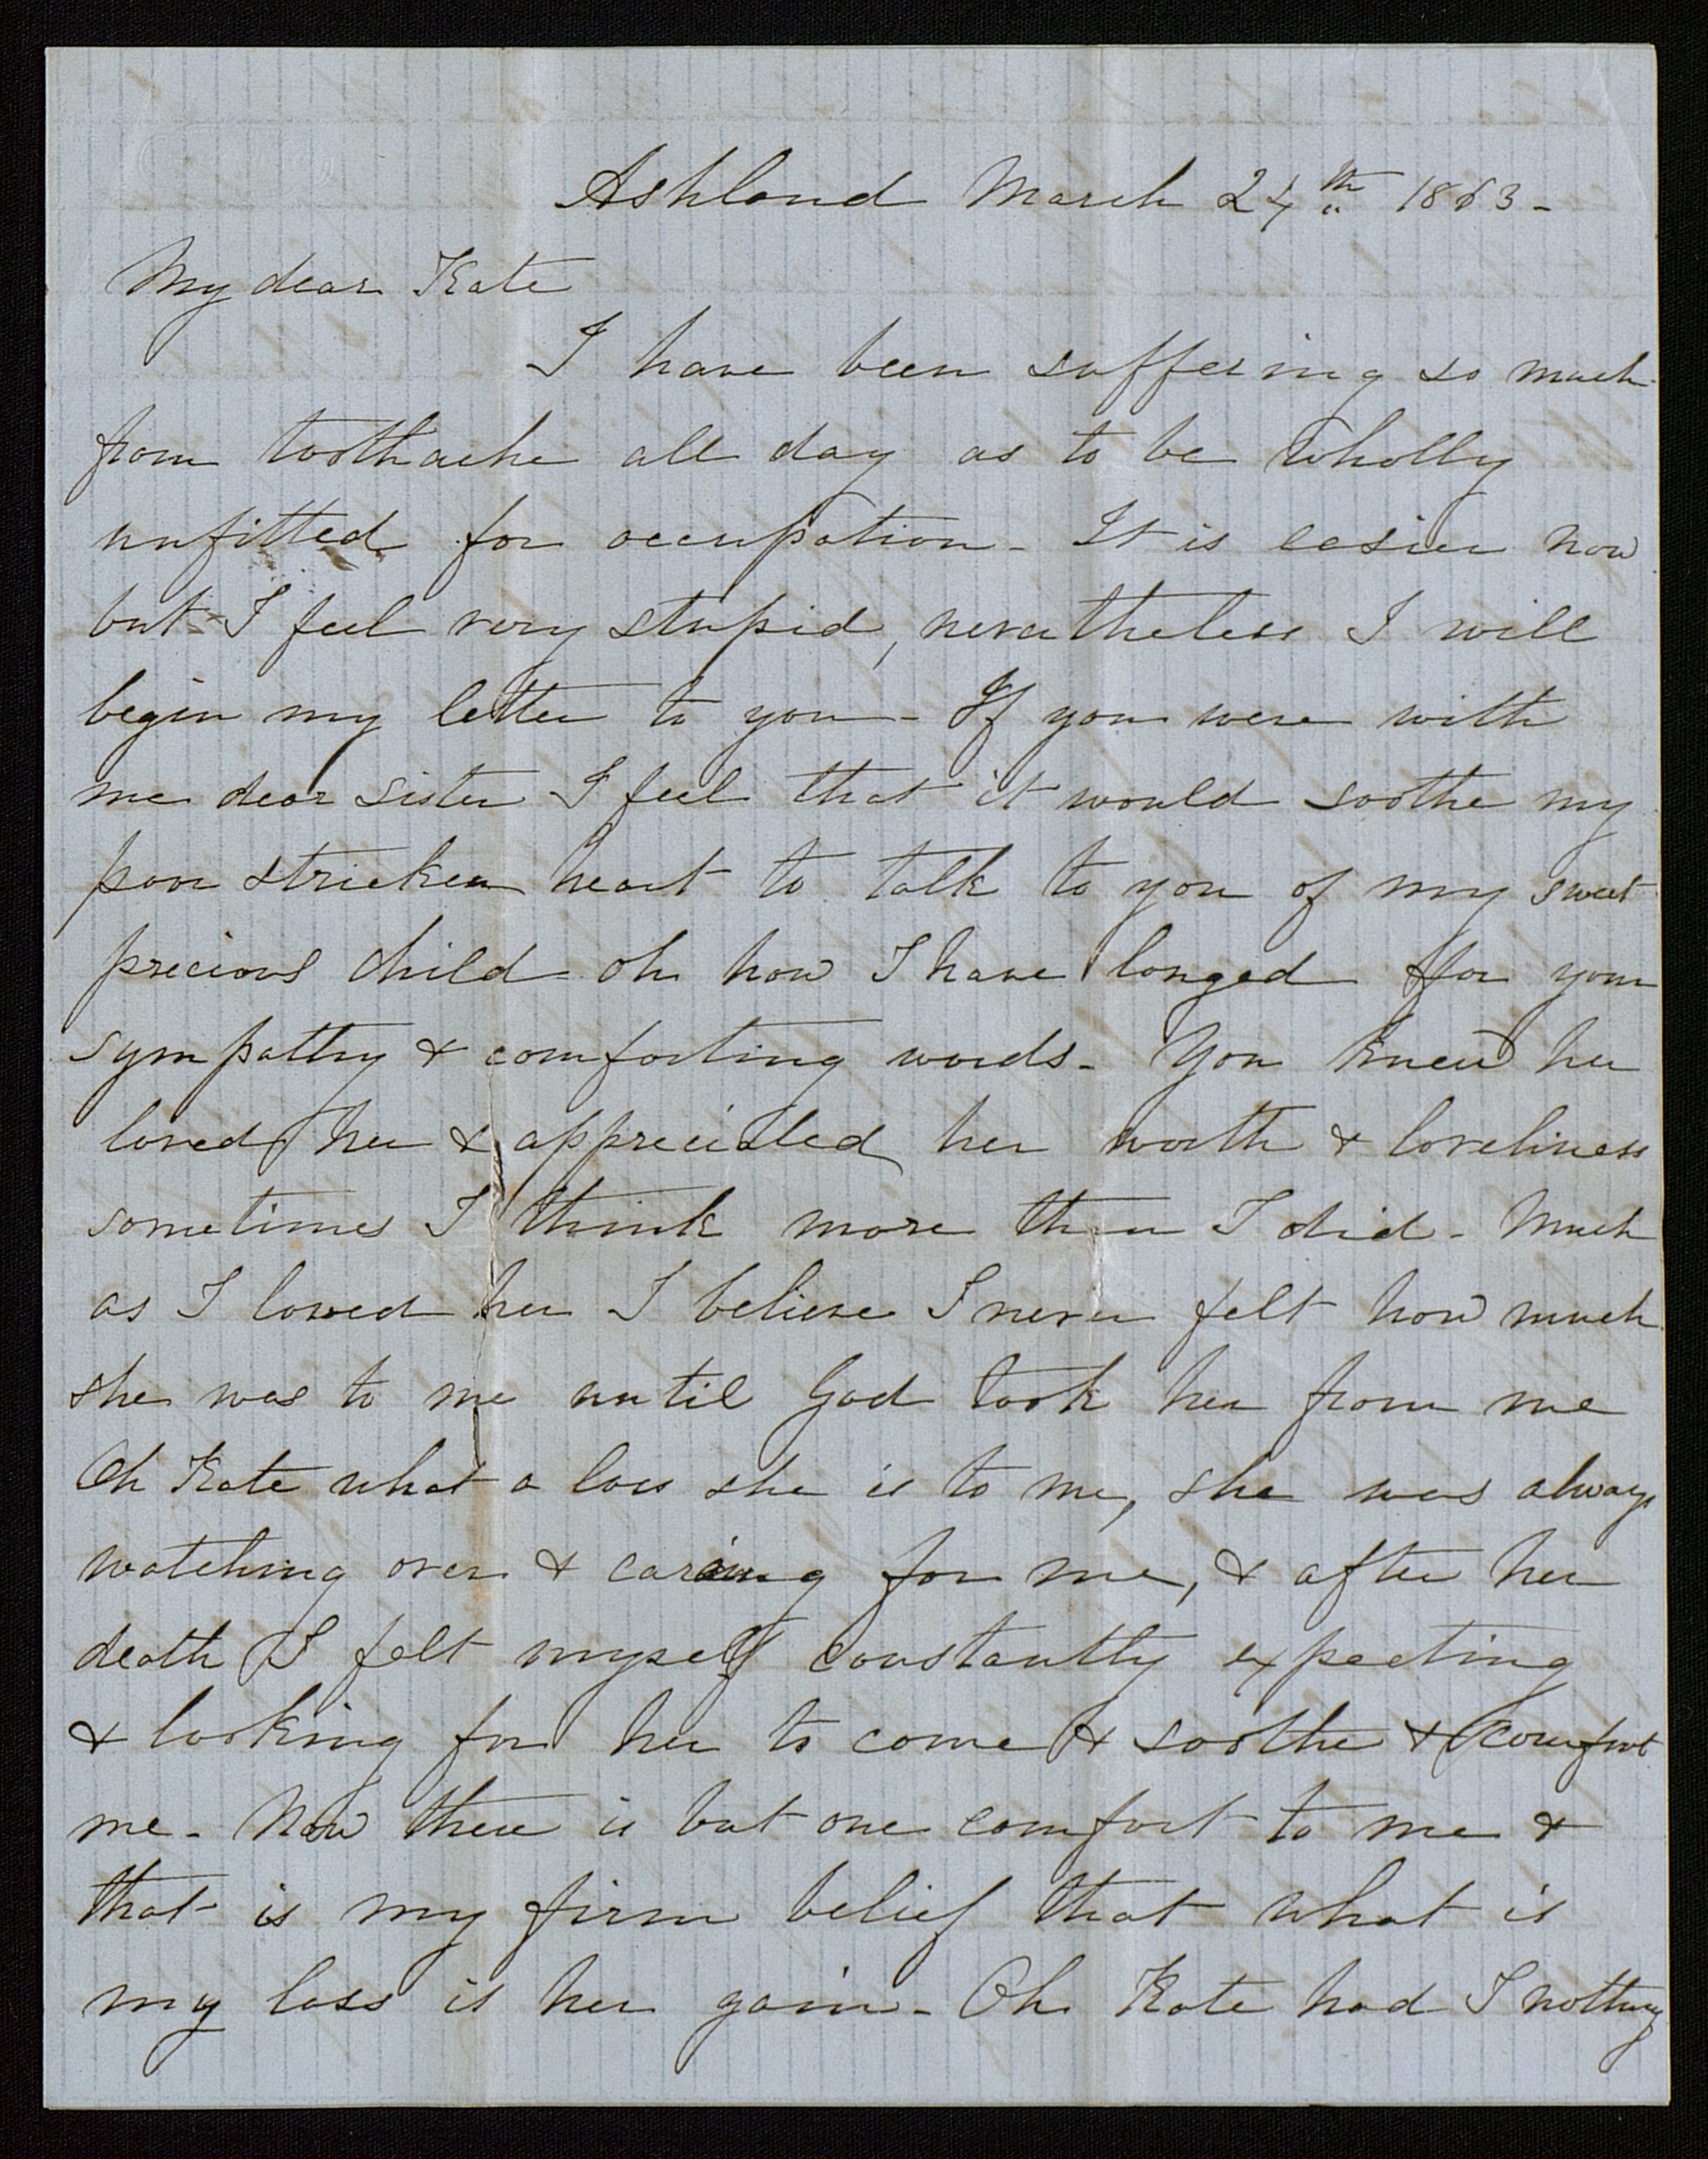 Ashland March 24th 1863-
My dear Kate
I have been suffering so much
from toothache all day as to be wholly
unfitted for occupation- It is easier now
but I feel very stupid, nevertheless I will
begin my letter to you- If you were with
me dear sister I feel that it would soothe my
poor stricken heart to talk to you of my sweet
precious child- oh how I have longed for your
sympathy & comforting words- You knew her
loved her & appreciated her worth & loveliness
sometimes I think more than I did- Much
as I loved her I believe I never felt how much
she was to me until God took her from me
Oh Kate what a loss she is to me, she was always
watching over & caring for me, & after her
death I felt myself constantly expecting
& looking for her to come & soothe & comfort
me- Now there is but one comfort to me &
that is my firm belief that what is
my loss is her gain- Oh Kate had I nothing